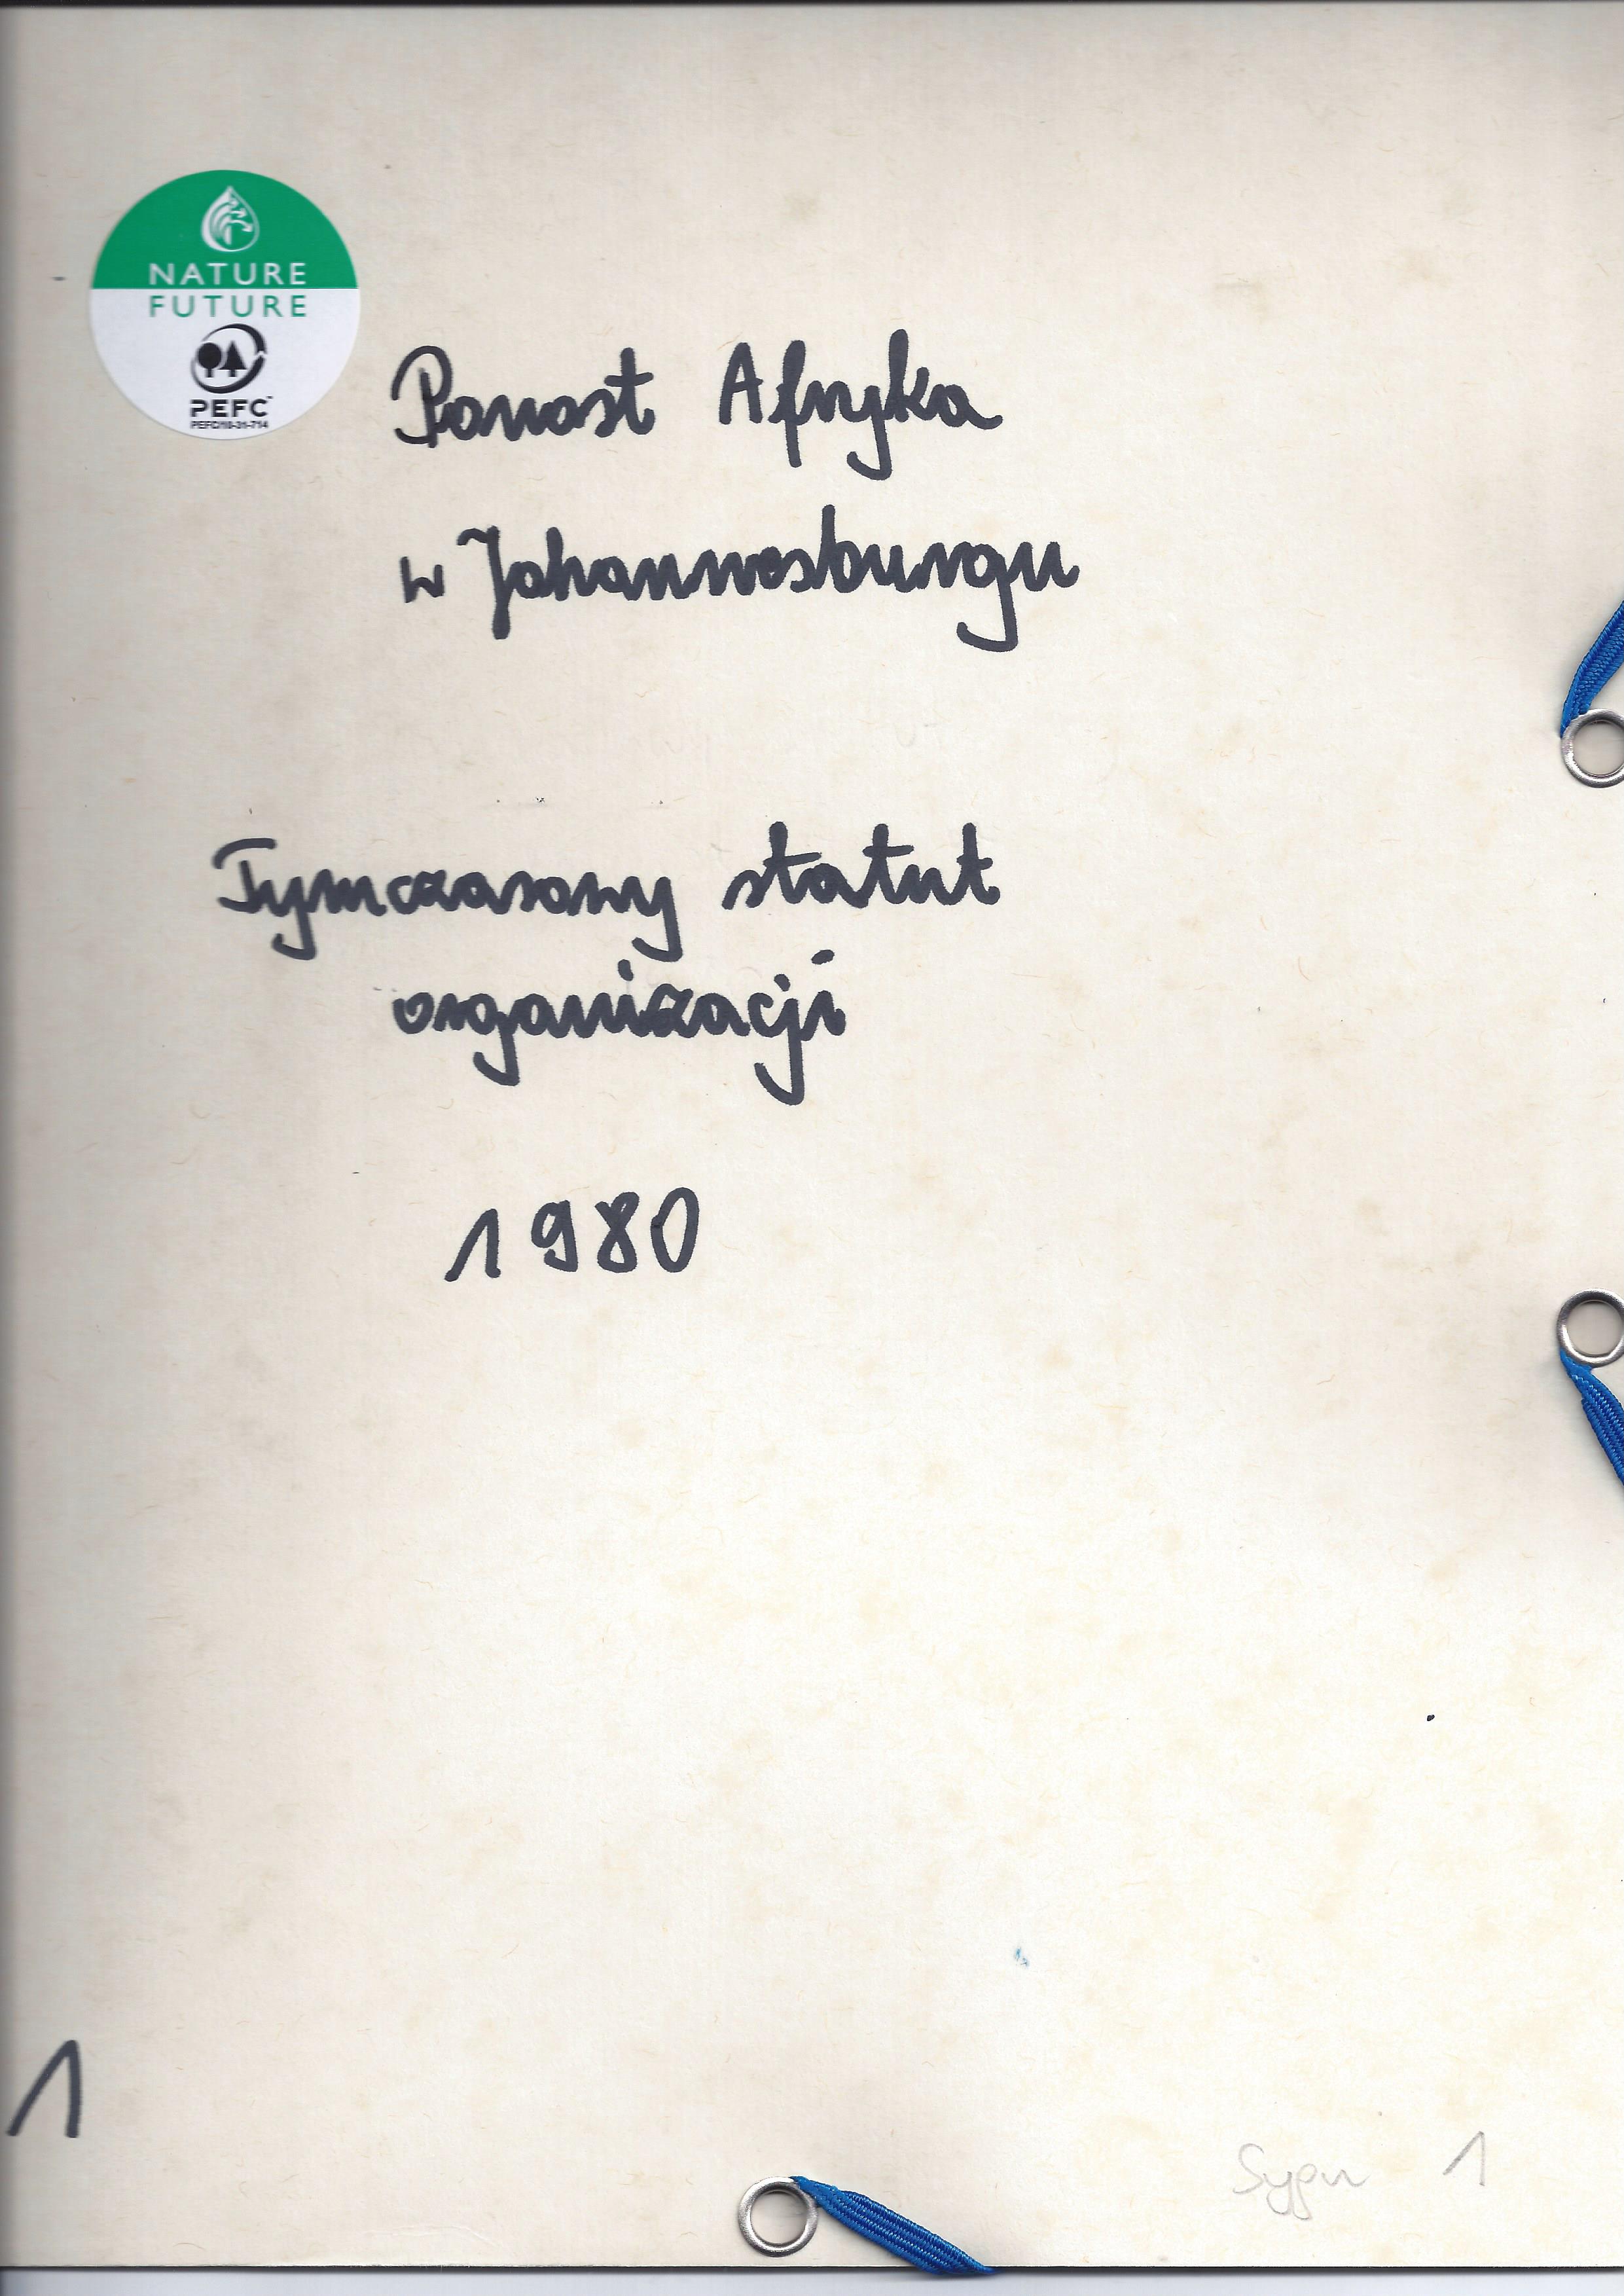 NATURE
FUTURE
PEFC
PEFC/10-31-714
Ponost Afryka
w Johannesburgu
Tymczasowy statut
organizacji
1980
1
Sygn 1